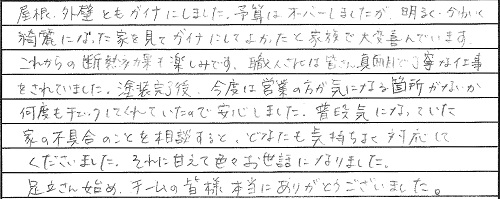 屋根、外壁ともガイナにしました。予算はオーバーしましたが、明るく・かわいく
綺麗になった家を見てガイナにしてよかったと家族で大変喜んでいます。
これからの断熱効果も楽しみです。職人さんには皆さん真面目で丁寧な仕事
をされていました。塗装完了後、今度は営業の方が気になる箇所がないか
何度もチェックしてくれていたので安心しました。普段気になっていた
家の不具合のことを相談すると、どなたも気持ちよく対応して
くださいました。それに甘えて色々お世話になりました。
足立さん始め、チームの皆様本当にありがとうございました。